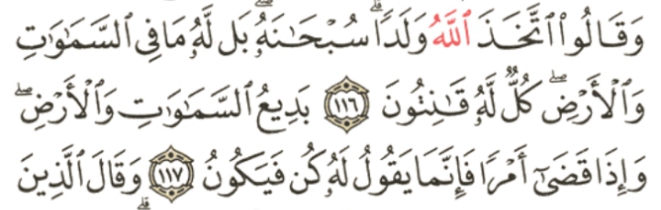 وَقَالُوا۟ ٱتَّخَذَ ٱللَّهُ وَلَدًا ۗ سُبْحَـٰنَهُۥ ۖ بَل لَّهُۥ مَا فِى ٱلسَّمَـٰوَٰتِ
وَٱلْأَرْضِ ۖ كُلٌّ لَّهُۥ قَـٰنِتُونَ ١١٦ بَدِيعُ ٱلسَّمَـٰوَٰتِ وَٱلْأَرْضِ ۖ
وَإِذَا قَضَىٰٓ أَمْرًا فَإِنَّمَا يَقُولُ لَهُۥ كُن فَيَكُونُ ١١٧ وَقَالَ ٱلَّذِينَ